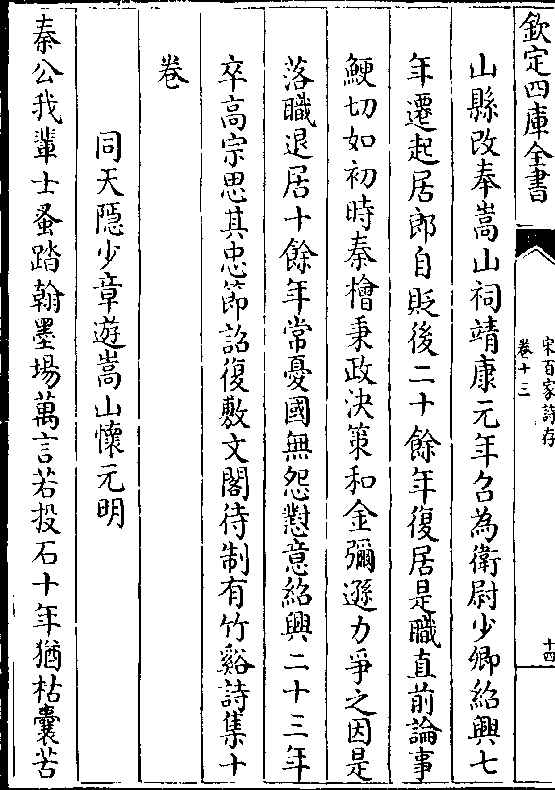 欽定四庫全書
宋百家詩存
卷十三
十四
山縣改奉嵩山祠靖康元年召為衛尉少卿紹興七
年遷起居郎自貶後二十餘年復居是職直前論事
鯁切如初時秦檜秉政決策和金彌遜力爭之因是
落職退居十餘年常憂國無怨懟意紹興二十三年
卒高宗思其忠節詔復敷文閣待制有竹谿詩集十
卷
同天隱少章遊嵩山懷元明
秦公我輩士蚤踏翰墨場萬言若投石十年猶枯囊苦